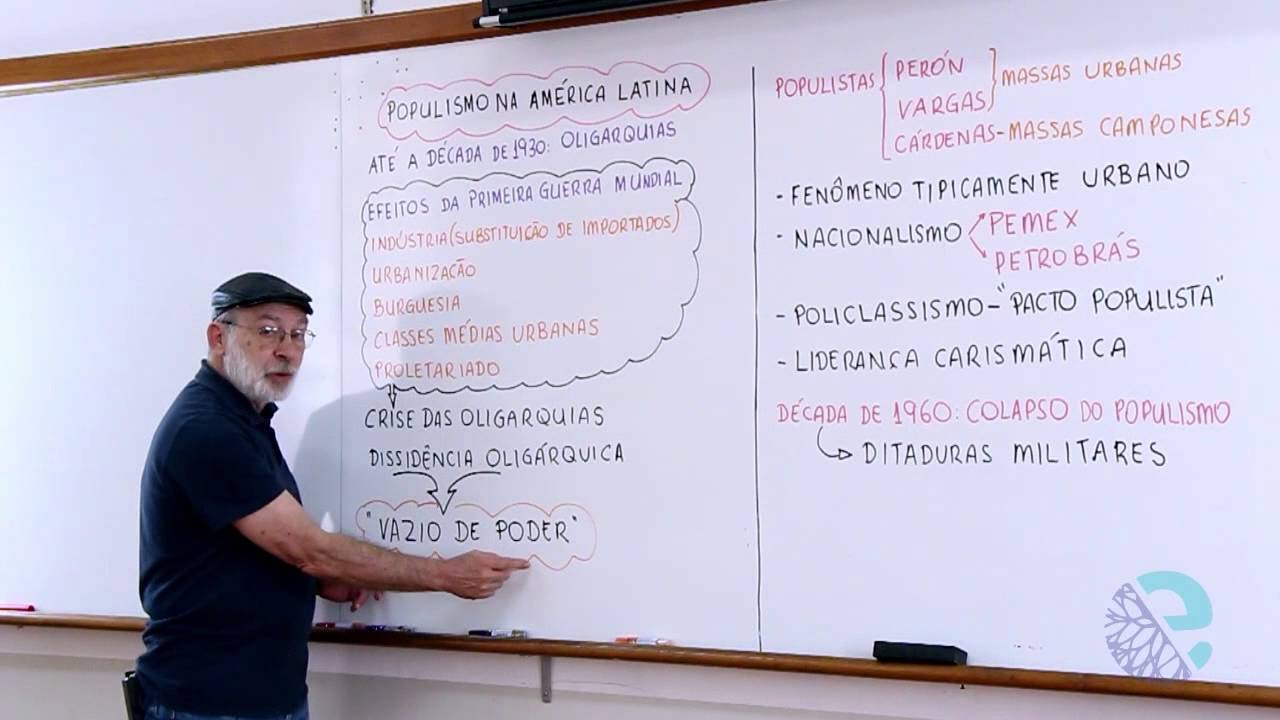 POPULISMO NA AMÉRICA LATINA
ATÉ A DÉCADA DE 1930: OLIGARQUIAS
EFEITOS DA PRIMEIRA GUERRA MUNDIAL
INDÚSTRIA (SUBSTITUIÇÃO DE IMPORTADOS)
URBANIZAÇÃO
BURGUESIA
CLASSES MÉDIAS URBANAS
PROLETARIADO
CRISE DAS OLIGARQUIAS
DISSIDÊNCIA OLIGÁRQUICA
"VAZIO DE PODER"
POPULISTAS { PERÓN } MASSAS URBANAS
VARGAS
CÁRDENAS - MASSAS CAMPONESAS
- FENÔMENO TIPICAMENTE URBANO
- NACIONALISMO PEMEX
PETROBRÁS
- POLICLASSISMO - "PACTO POPULISTA"
- LIDERANÇA CARISMÁTICA
DÉCADA DE 1960: COLAPSO DO POPULISMO
DITADURAS MILITARES